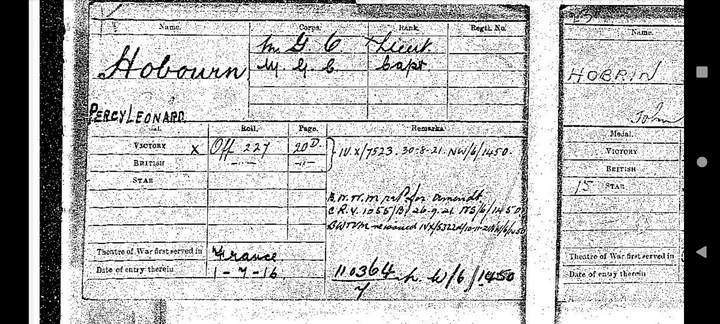 Name. Corps. Rank. Regtl. No.
Hobourn M. G. C. Lieut
M. G. C. Capt
PERCY LEONARD.
Roll. Page. Remarks.
VICTORY X Off 227 20D. IVX/7523. 30-8-21. NW/6/1450.
BRITISH —"— —"—
STAR
B.W.M for Amendt.
C.R.V. 1055/B/ 26.9.21 NW/6/1450
Theatre of War first served in France
Date of entry therein 1-7-16
110364/7 W/6/1450
23
Name.
HOBRIN
John
Medal.
VICTORY
BRITISH
15 STAR
Theatre of War first served in
Date of entry therein